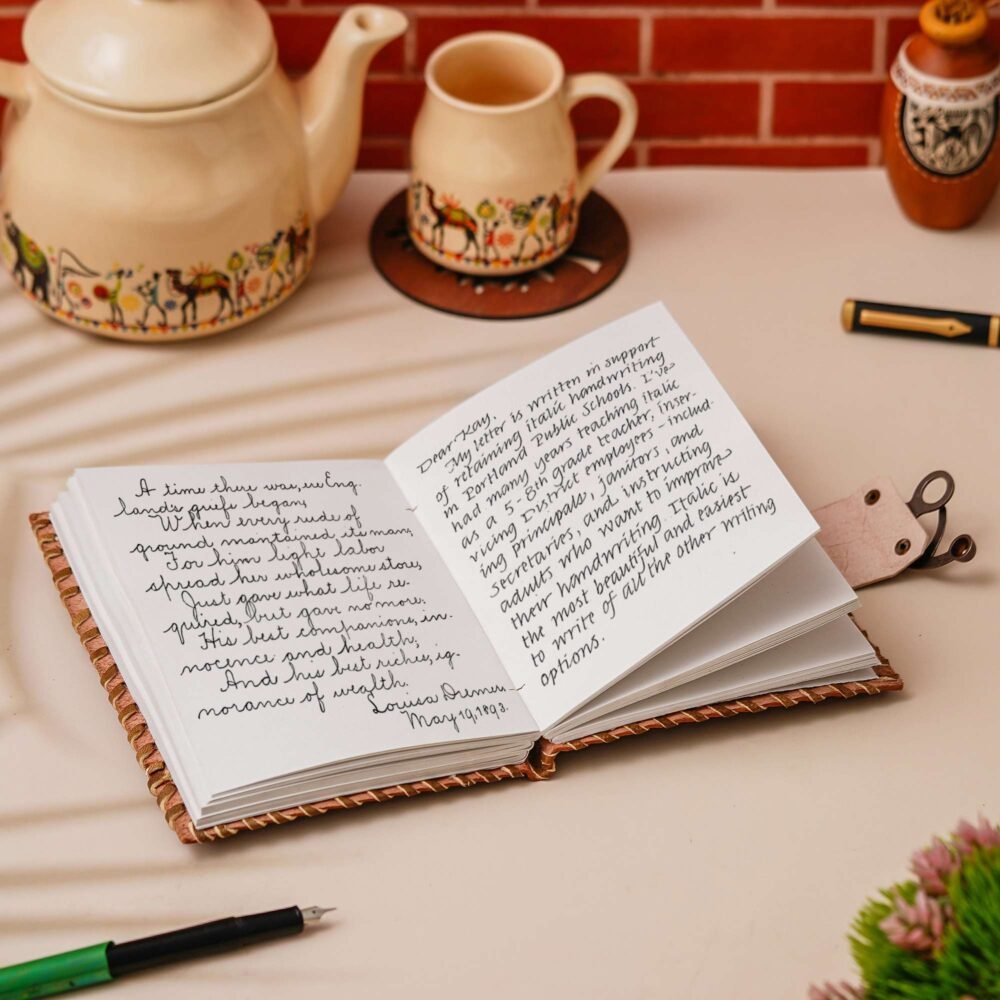 A time there was, ere Eng.
lands griefs began,
When every rude of
ground maintained its man;
For him light labor
spread her wholesome store,
Just gave what life re-
quired, but gave no more:
His best companions, in-
nocence and health;
And his best riches, ig-
norance of wealth.
Louisa Dremen,
May 19, 1893.
Dear Kay,
My letter is written in support
of retaining italic handwriting
in Portland Public Schools. I've
had many years teaching italic
as a 5-8th grade teacher, inser-
vicing District employees – includ-
ing principals, janitors, and
secretaries, and instructing
adults who want to improve
their handwriting. Italic is
the most beautiful and easiest
to write of all the other writing
options.